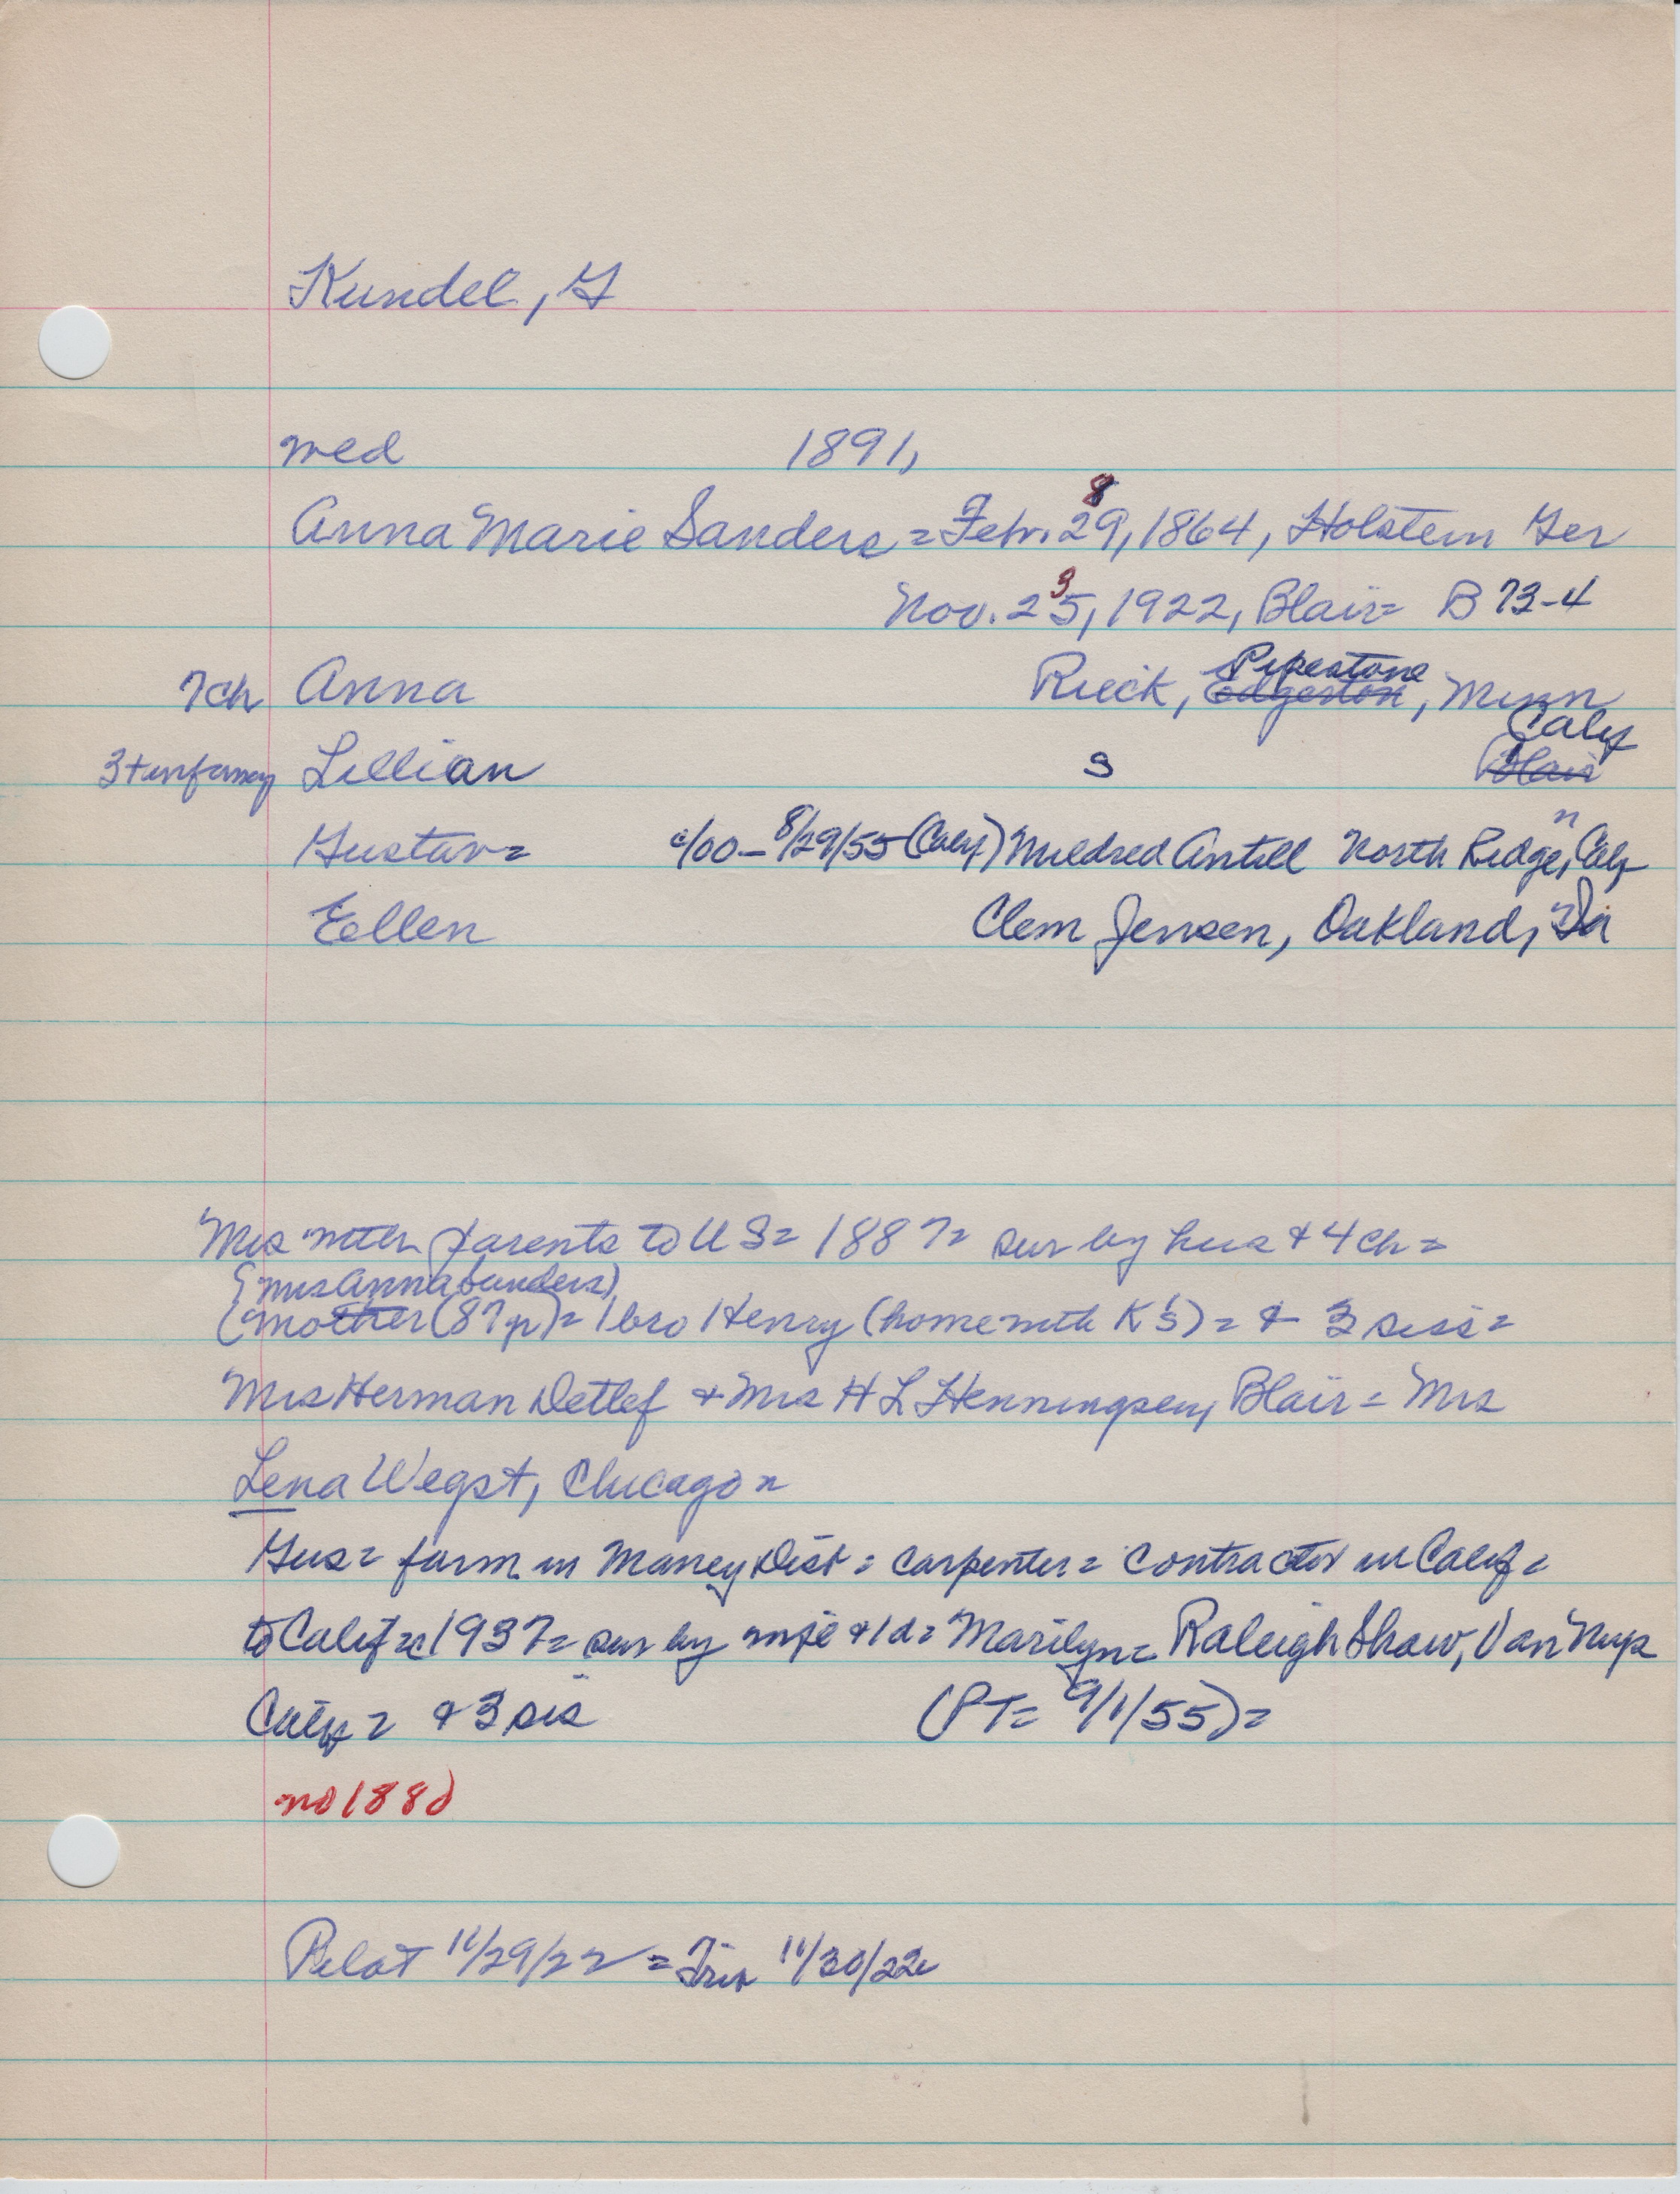 Kundel, G
med 1891,
8
Anna Marie Sanders = Feb. 29, 1864, Holstein Ger
3
Nov. 25, 1922, Blair = B 73-4
Pipestone
7 ch Anna Rieck, Edgerton, Minn
Calif
3 + infancy Lillian S Blair
n
Gustav = c/00 - 8/29/55 (Calif) Mildred Antill North Ridge, Calif
Eellen Clem Jensen, Oakland, Ia
Mrs with parents to US = 1887 = sur by hus + 4 ch =
(Mrs Anna Sanders)
(mother (87yr) = 1 bro Henry (home with K's) = + 3 siss =
Mrs Herman Detlef + Mrs H L Henningsen, Blair = Mrs
Lena Wegst, Chicago =
Gus = farm in Maney Dist = carpenter = contractor in Calif =
to Calif = c 1937 = sur by wife + 1 d = Marilyn = Raleigh Shaw, Van Nuys
Calif = + 3 sis (PT = 9/1/55) =
no 1880
Pilot 11/29/22 = Trib 11/30/22